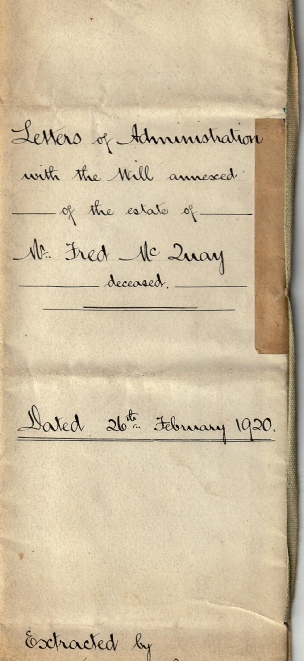 Letters of Administration
with the Will annexed
of the estate of
Mr. Fred McQuay
deceased.
Dated 26th February 1920.
Extracted by